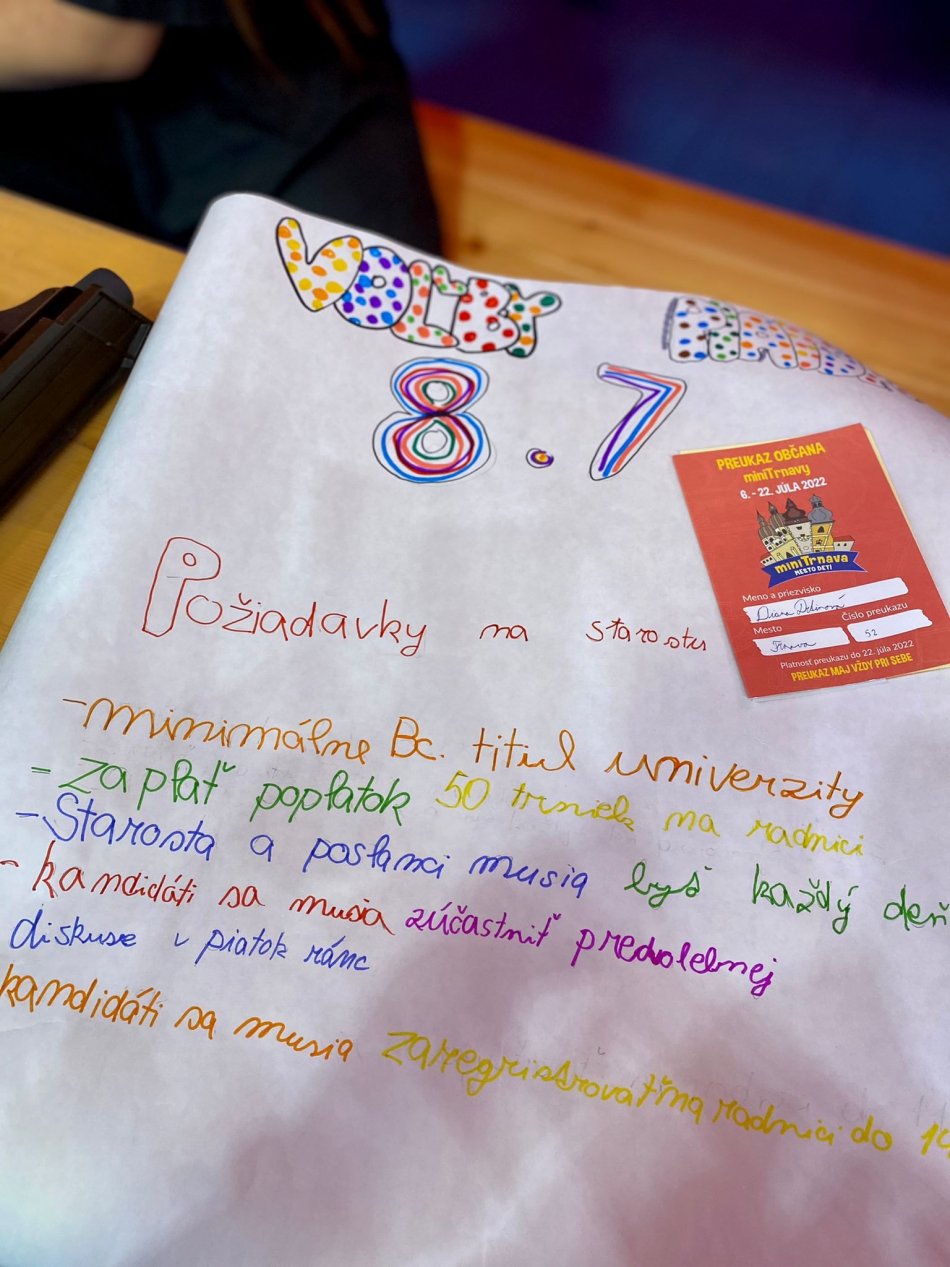 VOĽBY
8.7
PREUKAZ OBČANA
miniTrnavy
6. - 22. JÚLA 2022
miniTrnava
MESTO DETÍ
Meno a priezvisko
Diana
Mesto
Číslo preukazu
Trnava
52
Platnosť preukazu do 22. júla 2022
PREUKAZ MAJ VŽDY PRI SEBE
Požiadavky na starostu
- minimálne Bc. titul univerzity
- Zaplať poplatok 50 trniek na radnici
- Starosta a poslanci musia byť každý deň
- kandidáti sa musia zúčastniť predvolebnej
diskuse v piatok ránc
kandidáti sa musia zaregristrovať na radnici do